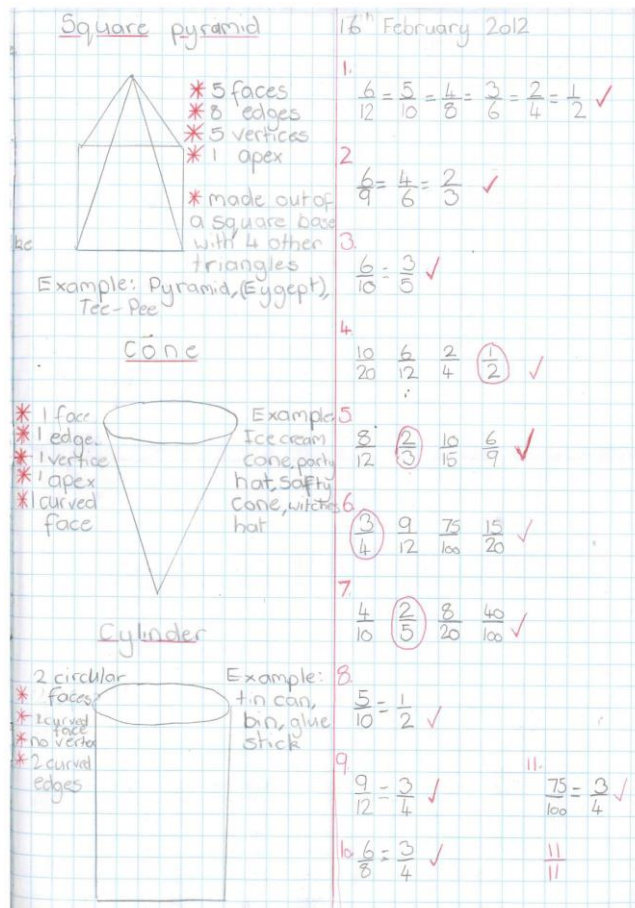 Square pyramid
* 5 faces
* 8 edges
* 5 vertices
* 1 apex
* made out of
a square base
with 4 other
triangles
Example: Pyramid, (Eygept),
Tee-Pee
Cone
* 1 face
* 1 edge
* 1 vertice
* 1 apex
* 1 curved
face
Example
Ice cream
cone, party
hat, safty
cone, witches
hat
Cylinder
2 circular
* faces
* 1 curved
face
* no vertex
* 2 curved
edges
Example:
tin can,
bin, glue
stick
16th February 2012
1.
6/12 = 5/10 = 4/8 = 3/6 = 2/4 = 1/2 ✓
2
6/9 = 4/6 = 2/3 ✓
3.
6/10 = 3/5 ✓
4
10/20 6/12 2/4 1/2 ✓
5
8/12 2/3 10/15 6/9 ✓
6.
3/4 9/12 75/100 15/20 ✓
7.
4/10 2/5 8/20 40/100 ✓
8.
5/10 = 1/2 ✓
9
9/12 = 3/4 ✓
10. 6/8 = 3/4 ✓
11.
75/100 = 3/4 ✓
11/11